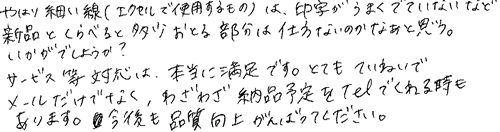 やはり細い線(エクセルで使用するもの)は、印字がうまくでていないなど
新品とくらべると多少おとる部分は仕方ないのかなあと思う。
いかがでしょうか?
サービス等対応は、本当に満足です。とてもていねいで
メールだけでなく、わざわざ納品予定をtelでくれる時も
あります。今後も品質向上がんばってください。